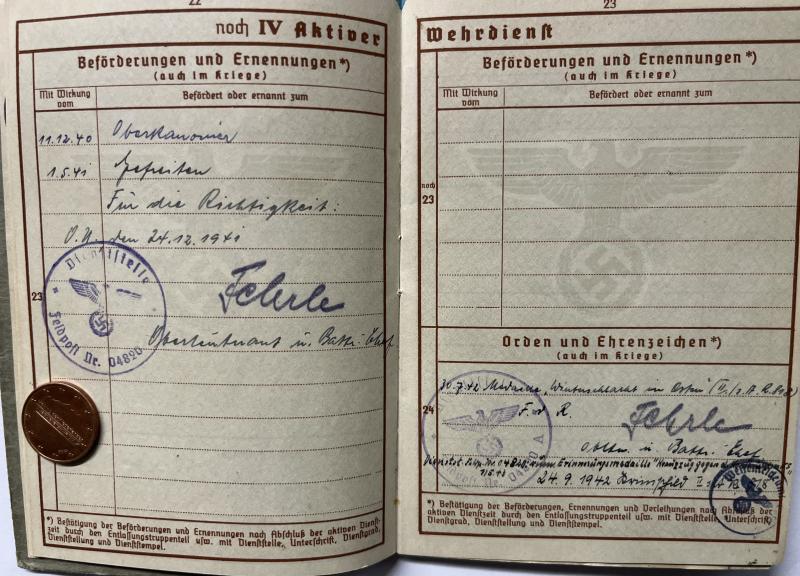 22
noch IV Aktiver
Beförderungen und Ernennungen*)
(auch im Kriege)
Mit Wirkung vom
Befördert oder ernannt zum
11.12.40 Oberkanonier
1.5.41 Gefreiten
Für die Richtigkeit:
O.U. den 24.12.1941
23
Dienststelle
Feldpost Nr. 04890
Fehrle
Oberleutnant u. Battr. Chef
*) Bestätigung der Beförderungen und Ernennungen nach Abschluß der aktiven Dienst-
zeit durch den Entlassungstruppenteil usw. mit Dienststelle, Unterschrift, Dienstgrad,
Dienststellung und Dienststempel.
23
Wehrdienst
Beförderungen und Ernennungen*)
(auch im Kriege)
Mit Wirkung vom
Befördert oder ernannt zum
noch
23
Orden und Ehrenzeichen*)
(auch im Kriege)
30.7.42 Medaille „Winterschlacht im Osten"
24
F. d. R. Fehrle
Obltn. u. Battr. Chef
Erinnerungsmedaille "Kreuzzug gegen
24.9.1942
*) Bestätigung der Beförderungen, Ernennungen und Verleihungen nach Abschluß der
aktiven Dienstzeit durch den Entlassungstruppenteil usw. mit Dienststelle, Unterschrift,
Dienstgrad, Dienststellung und Dienststempel.